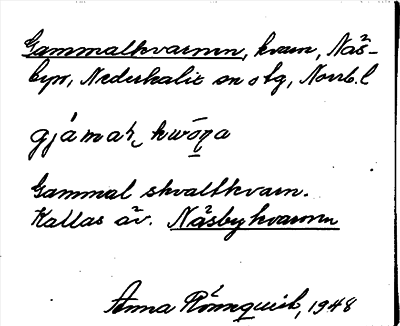 Gammalkvarnen, kvarn, Näs-
byn, Nederkalix sn o tg, Norrb. l
gjámaḷ kwǫ́ṇa
Gammal skvaltkvarn.
Kallas äv. Näsbykvarnen
Anna Rönnquist, 1948